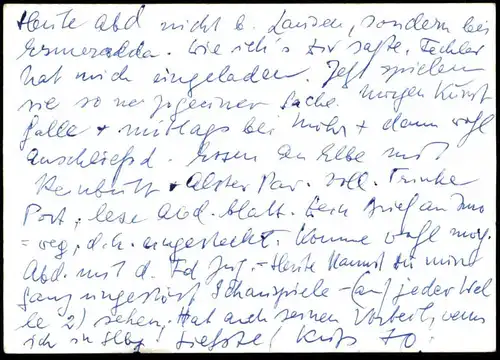 Heute Abd nicht b. Lausen, sondern bei
Esmeralda. Wie ich's Dir sagte. Fechler
hat mich eingeladen. Jetzt spielen
sie so ne Zigeuner Sache. Morgen Kunst
halle + mittags bei Mohr + dann wohl
anschließd. Essen an Elbe mit
+ Alster Pav. voll. Trinke
Port, lese Abd.blatt. Dein Brief an
weg, d.h. eingesteckt. Komme wohl morg.
Abd. mit d. Zug. - Heute kannst Du mein
ganz ungestört Schauspiele - (auf jeder Wel
le 2) sehen. Hat auch seinen Vorteil, wenn
ich in Hbg! Liebster Kuß